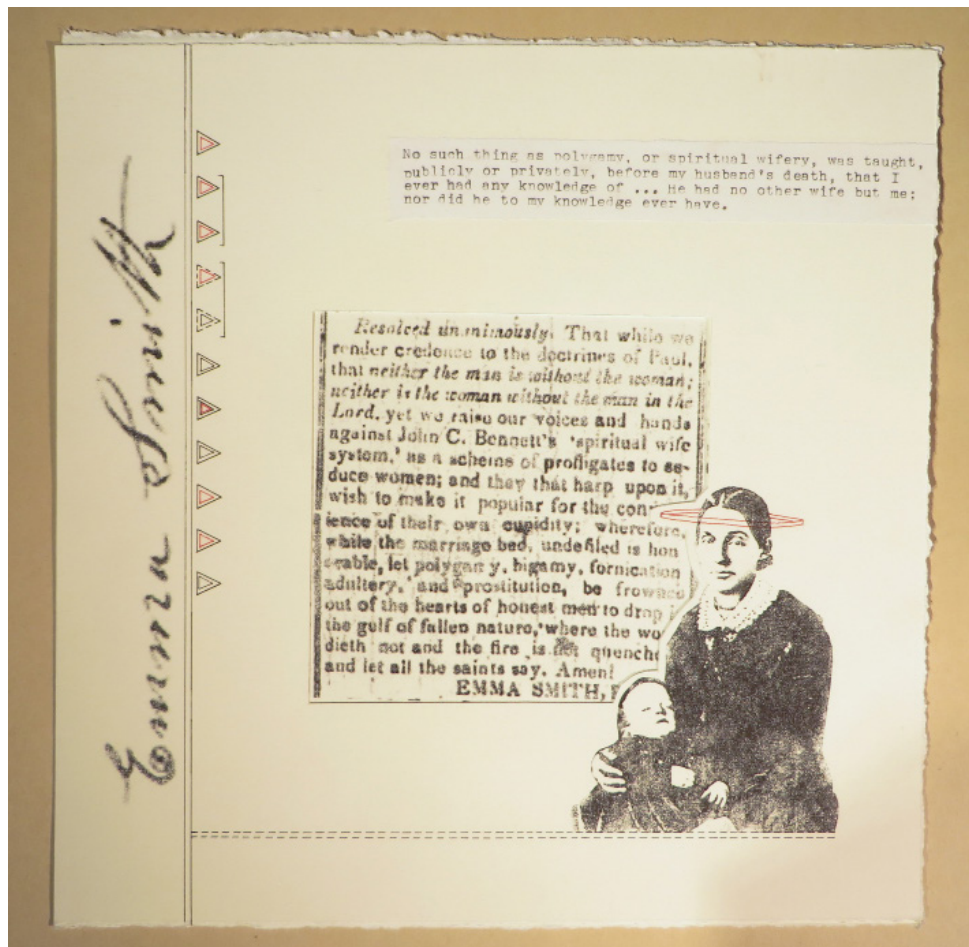 Emma Smith
No such thing as polygamy, or spiritual wifery, was taught,
publicly or privately, before my husband's death, that I
ever had any knowledge of ... He had no other wife but me;
nor did he to my knowledge ever have.
Resolved unanimously. That while we
render credence to the doctrines of Paul,
that neither the man is without the woman;
neither is the woman without the man in the
Lord, yet we raise our voices and hands
against John C. Bennett's 'spiritual wife
system,' as a scheme of profligates to se-
duce women; and they that harp upon it,
wish to make it popular for the con
ience of their own cupidity; wherefore,
while the marriage bed, undefiled is hon
orable, let polygamy, bigamy, fornication
adultery,' and prostitution, be frowned
out of the hearts of honest men to drop
the gulf of fallen nature, 'where the wo
dieth not and the fire is not quenche
and let all the saints say, Amen!
EMMA SMITH,